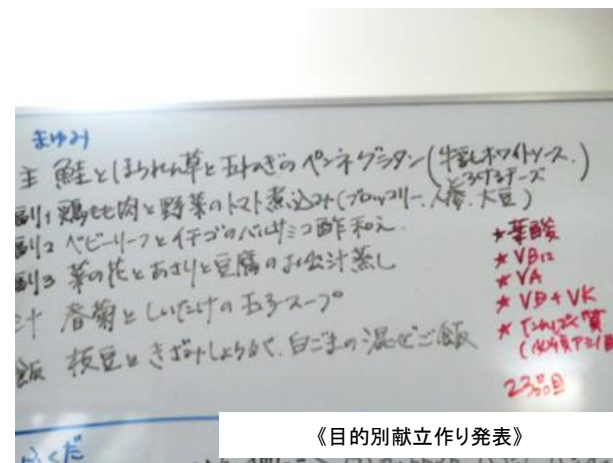 まゆみ
主 鮭とほうれん草と玉ねぎのペンネグラタン(牛乳ホワイトソース、
とろけるチーズ)
副1 鶏もも肉と野菜のトマト煮込み(ブロッコリー、人参、大豆)
副2 ベビーリーフとイチゴのバルサミコ酢和え
副3 菜の花とあさりと豆腐のお出汁蒸し
汁 春菊としいたけの玉子スープ
飯 枝豆ときざみしょうが、白ごまの混ぜご飯
*葉酸
*VB12
*VA
*VB+VK
*たんぱく質
(必須アミノ酸
23品目
ふくだ
《目的別献立作り発表》